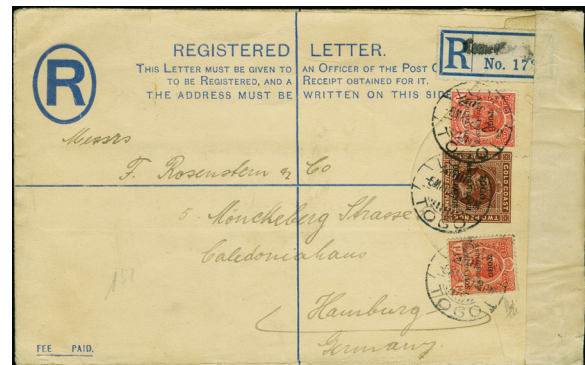 REGISTERED LETTER.
THIS LETTER MUST BE GIVEN TO AN OFFICER OF THE POST
TO BE REGISTERED, AND A RECEIPT OBTAINED FOR IT.
THE ADDRESS MUST BE WRITTEN ON THIS SIDE
R
R
No. 17
Messrs
F. Rosenstern & Co
5. Mönckeberg Strasse
Caledoniahaus
Hamburg
Germany.
TOGO
GOLD COAST
TOGO
TOGO
FEE PAID.